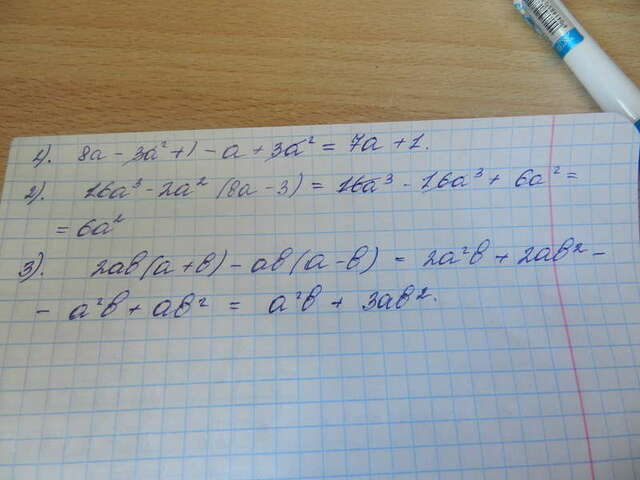 1). 8a - 3a² + 1 - a + 3a² = 7a + 1.
2). 16a³ - 2a² (8a - 3) = 16a³ - 16a³ + 6a² =
= 6a²
3). 2ab(a + b) - ab(a - b) = 2a²b + 2ab² -
- a²b + ab² = a²b + 3ab².